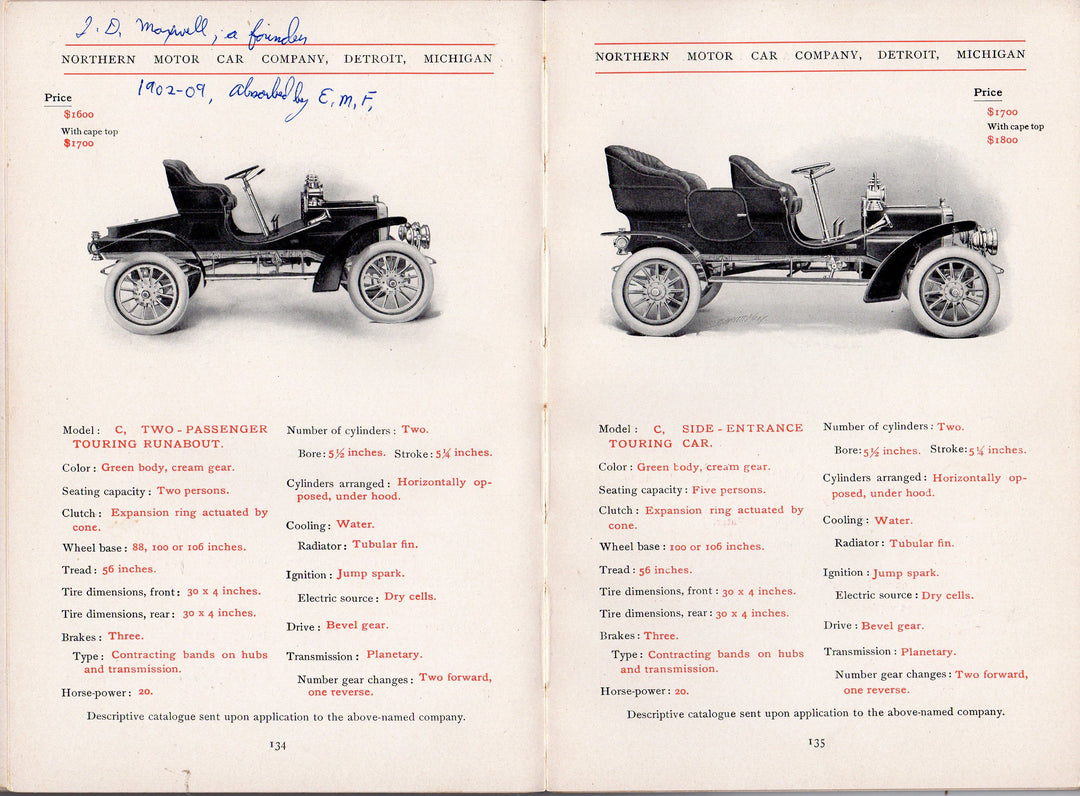 J. D. Maxwell, a founder
NORTHERN MOTOR CAR COMPANY, DETROIT, MICHIGAN
1902-09, Absorbed by E.M.F.
Price
$1600
With cape top
$1700
Model: C, TWO-PASSENGER
TOURING RUNABOUT.
Color: Green body, cream gear.
Seating capacity: Two persons.
Clutch: Expansion ring actuated by
cone.
Wheel base: 88, 100 or 106 inches.
Tread: 56 inches.
Tire dimensions, front: 30 x 4 inches.
Tire dimensions, rear: 30 x 4 inches.
Brakes: Three.
Type: Contracting bands on hubs
and transmission.
Horse-power: 20.
Number of cylinders: Two.
Bore: 5½ inches. Stroke: 5¼ inches.
Cylinders arranged: Horizontally op-
posed, under hood.
Cooling: Water.
Radiator: Tubular fin.
Ignition: Jump spark.
Electric source: Dry cells.
Drive: Bevel gear.
Transmission: Planetary.
Number gear changes: Two forward,
one reverse.
Descriptive catalogue sent upon application to the above-named company.
134
NORTHERN MOTOR CAR COMPANY, DETROIT, MICHIGAN
Price
$1700
With cape top
$1800
Model: C, SIDE-ENTRANCE
TOURING CAR.
Color: Green body, cream gear.
Seating capacity: Five persons.
Clutch: Expansion ring actuated by
cone.
Wheel base: 100 or 106 inches.
Tread: 56 inches.
Tire dimensions, front: 30 x 4 inches.
Tire dimensions, rear: 30 x 4 inches.
Brakes: Three.
Type: Contracting bands on hubs
and transmission.
Horse-power: 20.
Number of cylinders: Two.
Bore: 5½ inches. Stroke: 5¼ inches.
Cylinders arranged: Horizontally op-
posed, under hood.
Cooling: Water.
Radiator: Tubular fin.
Ignition: Jump spark.
Electric source: Dry cells.
Drive: Bevel gear.
Transmission: Planetary.
Number gear changes: Two forward,
one reverse.
Descriptive catalogue sent upon application to the above-named company.
135